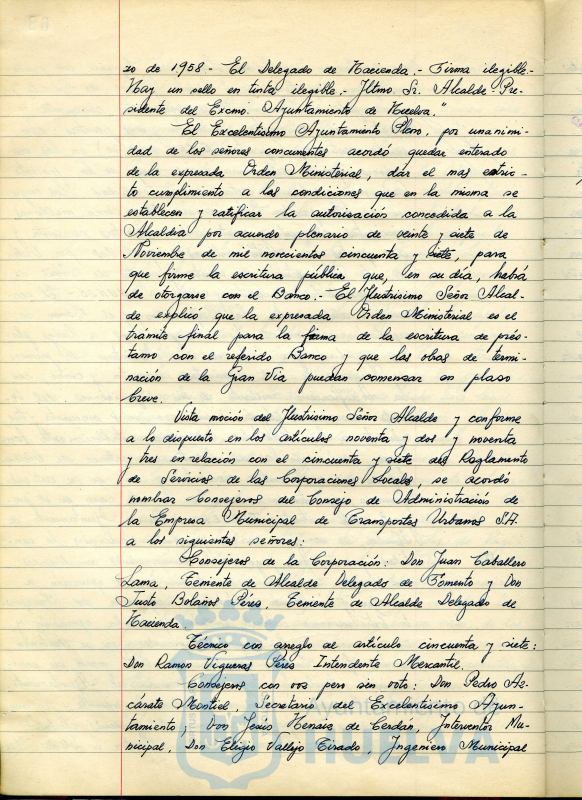 zo de 1958 - El Delegado de Hacienda.- Firma ilegible.-
Hay un sello en tinta ilegible.- Iltmo. Sr. Alcalde-Pre-
sidente del Excmo. Ayuntamiento de Huelva."
El Excelentísimo Ayuntamiento Pleno, por unanimi-
dad de los señores concurrentes acordó quedar enterado
de la expresada Orden Ministerial, dar el mas estric-
to cumplimiento a las condiciones que en la misma se
establecen y ratificar la autorisación concedida a la
Alcaldía por acuerdo plenario de veinte y siete de
Noviembre de mil novecientos cincuenta y siete, para
que firme la escritura pública que, en su día, habrá
de otorgarse con el Banco.- El Ilustrísimo Señor Alcal-
de explicó que la expresada Orden Ministerial es el
trámite final para la firma de la escritura de prés-
tamo con el referido Banco y que las obras de termi-
nación de la Gran Vía puedan comenzar en plazo
breve.
Vista moción del Ilustrísimo Señor Alcalde y conforme
a lo dispuesto en los artículos noventa y dos y noventa
y tres en relación con el cincuenta y siete del Reglamento
de Servicios de las Corporaciones Locales, se acordó
nombrar Consejeros del Consejo de Administración de
la Empresa Municipal de Transportes Urbanos S.A.
a los siguientes señores:
Consejeros de la Corporación: Don Juan Caballero
Lama, Teniente de Alcalde Delegado de Fomento y Don
Justo Bolaños Pérez, Teniente de Alcalde Delegado de
Hacienda.
Técnico con arreglo al artículo cincuenta y siete:
Don Ramon Vigueras Pérez Intendente Mercantil.
Consejeros con voz pero sin voto: Don Pedro Az-
cárate Montiel, Secretario del Excelentísimo Ayun-
tamiento, Don Jesús Henaiz de Cerdán, Interventor Mu-
nicipal, Don Eligio Vallejo Tirado, Ingeniero Municipal
HUELVA